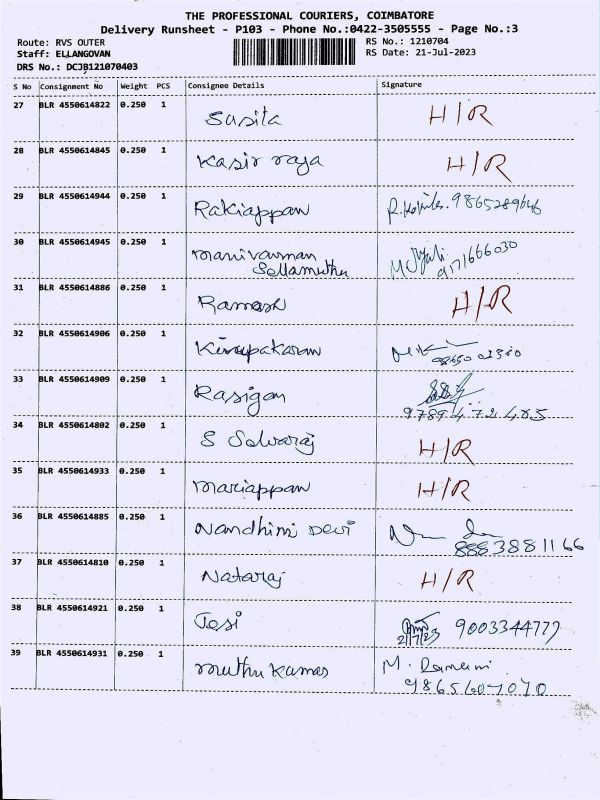 THE PROFESSIONAL COURIERS, COIMBATORE
Delivery Runsheet - P103 - Phone No.:0422-3505555 - Page No.:3
Route: RVS OUTER
RS No.: 1210704
Staff: ELLANGOVAN
RS Date: 21-Jul-2023
DRS No.: DCJB121070403
S No Consignment No Weight PCS Consignee Details Signature
27 BLR 4550614822 0.250 1 Susila H/R
28 BLR 4550614845 0.250 1 Kasir raja H/R
29 BLR 4550614944 0.250 1 Rakiappan 9865289646
30 BLR 4550614945 0.250 1 manivannan
Sellamuthu 9171666030
31 BLR 4550614886 0.250 1 Ramesh H/R
32 BLR 4550614906 0.250 1 Kirupakaran
33 BLR 4550614909 0.250 1 Rasigan
9789472485
34 BLR 4550614802 0.250 1 S Selvaraj H/R
35 BLR 4550614933 0.250 1 mariappan H/R
36 BLR 4550614885 0.250 1 Nandhini Devi
8883881166
37 BLR 4550614810 0.250 1 Nataraj H/R
38 BLR 4550614921 0.250 1 Jesi 21/7/23 9003344777
39 BLR 4550614931 0.250 1 muthu Kumar M.
9865607070